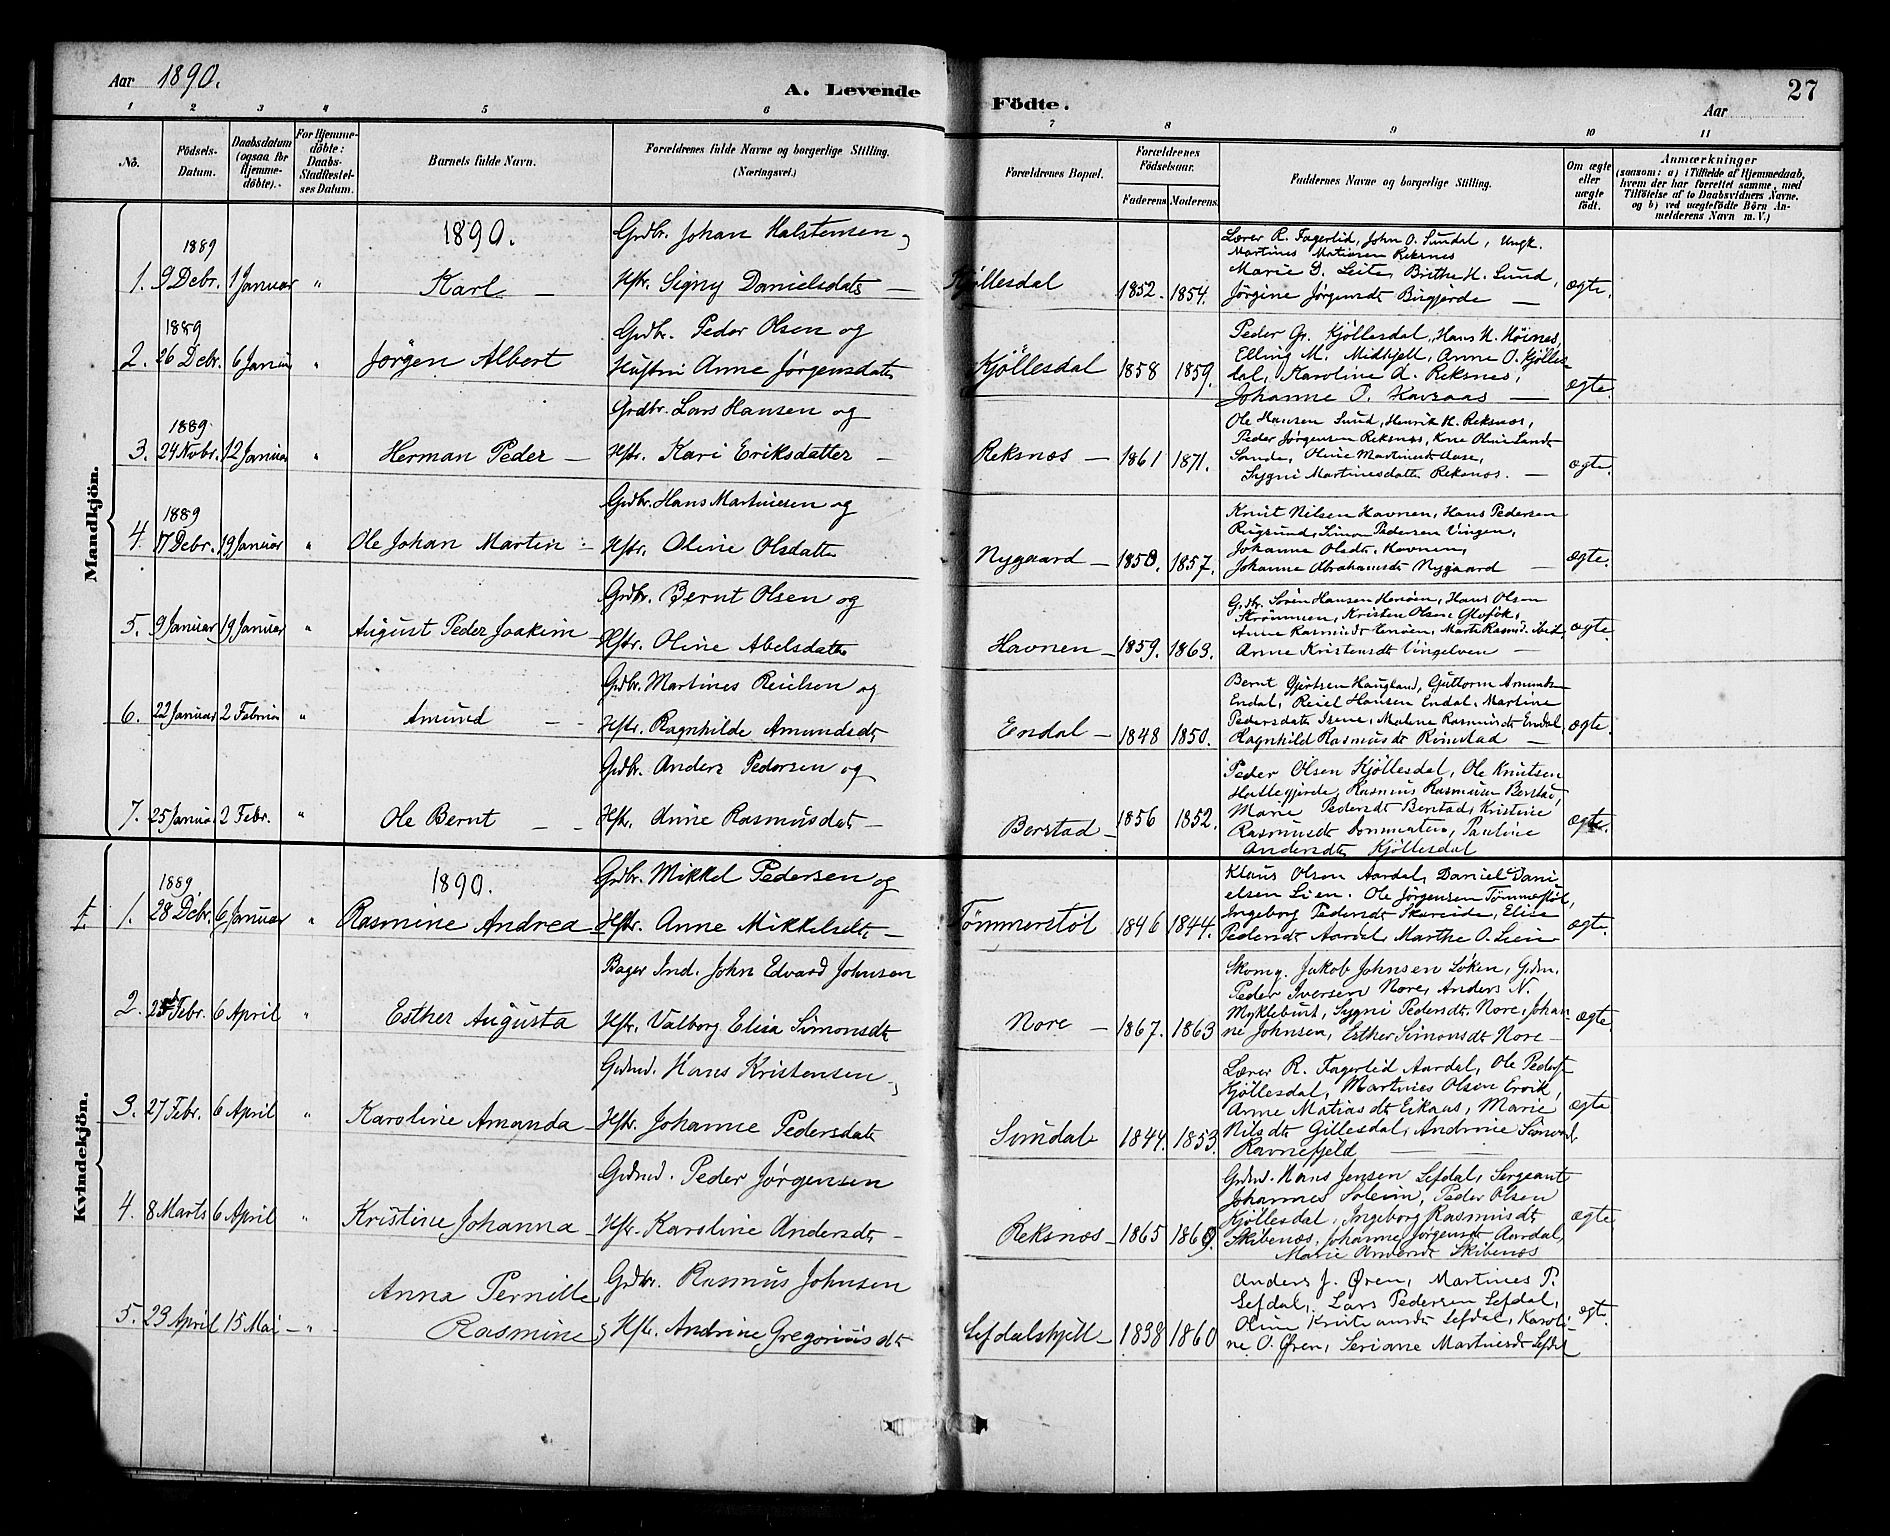 Aar 1890.
A. Levende
Födte.
Aar
27
1 2 3 4 5 6 7 8 9 10 11
No.
Födsels-
Datum.
Daabsdatum
(ogsaa for
Hjemme-
döbte).
For Hjemme-
döbte:
Daabs-
Stadfæstel-
ses Datum.
Barnets fulde Navn.
Forældrenes fulde Navne og borgerlige Stilling.
(Næringsvei.)
Forældrenes Bopæl.
Forældrenes
Födselsaar.
Faderens. Moderens.
Faddernes Navne og borgerlige Stilling.
Om ægte
eller
uægte
födt.
Anmærkninger
(saasom: a) i Tilfælde af Hjemmedaab,
hvem der har forrettet samme, med
Tilföielse af to Daabsvidners Navne.
og b) ved uægtefödte Börn An-
melderens Navn m. V.)
Mandkjön.
1890.
1889
1. 9 Debr. 1 Januar "
Karl —
Grdbr. Johan Halstensen,
Hstr. Signy Danielsdatr —
Kjøllesdal
1852. 1854.
Lærer R. Fagerlid, John O. Sundal, Ungk.
Martines Matiasen Reksnes
Marie D. Leite, Brithe H. Lund,
Jørgine Jørgensdt Birgjerde —
ægte.
1889
2. 26 Debr. 6 Januar "
Jørgen Albert
Grdbr. Peder Olsen og
Hustru Anne Jørgensdatr
Kjöllesdal
1858 1859.
Peder Gr. Kjöllesdal, Hans H. Høines,
Elling M. Midhjell, Anne O. Kjölles-
dal, Karoline A. Reksnes,
Johanne P. Kavraas —
ægte.
1889
3. 24 Novbr. 12 Januar "
Herman Peder —
Grdbr. Lars Hansen og
Hstr. Kari Eriksdatter —
Reksnæs —
1861 1871.
Ole Hansen Lund, Henrik H. Reksnæs,
Peder Jørgensen Reksnæs, Kone Oline Landt
Sande, Oline Martinusdt Aase,
Sygni Martinusdatr Reksnæs. —
ægte.
1889
4. 17 Debr. 19 Januar "
Ole Johan Martin
Grdbr. Hans Martinesen og
Hstr. Oline Olsdatter
Nygaard —
1850. 1857.
Knut Nilsen Havnen, Hans Pedersen
Rugsund, Simon Pedersen Vingen,
Johanne Olsdt. Havnen,
Johanne Abrahamsdt Nygaard —
ægte.
5. 9 Januar 19 Januar "
August Peder Joakim
Grdbr. Bernt Olsen og
Hstr. Oline Abelsdatter
Havnen —
1859. 1863.
Grdbr. Søren Hansen Henøen, Hans Olsen
Strømmen, Kristen Olsen
Anne Rasmusdt Henøen, Marte Rasmd. ibid,
Anne Kristensdt Vingelven —
ægte.
6. 22 Januar 2 Februar "
Amund — —
Grdbr. Martines Reielsen og
Hstr. Ragnhilde Amundsdt
Endal —
1848 1850.
Bernt Gjertsen Haugland, Guttorm Amunds.
Endal, Reiel Hansen Endal, Martine
Pedersdatr Isene, Malene Rasmusdt Endal,
Ragnhild Rasmusdt Rimstad —
ægte.
7. 25 Januar 2 Febr. "
Ole Bernt — —
Grdbr. Anders Pedersen og
Hstr. Anne Rasmusdatr —
Berstad —
1856 1852.
Peder Olsen Kjöllesdal, Ole Knutsen
Hattegjerde, Rasmus Rasmusen Berstad,
Marie Pedersdt Berstad, Kristine
Rasmusdt Pauline
Andersdt Kjöllesdal
ægte.
Kvindekjön.
1890.
1889
† 1. 28 Debr. 6 Januar "
Rasmine Andrea
Grdbr. Mikkel Pedersen og
Hstr. Anne Mikkelsdtr —
Tömmerstöl
1846 1844.
Klaus Olsen Aardal, Daniel Dani-
elsen Lien. Ole Jørgensen Tömmerstöl,
Ingeborg Pedersdt Skareide, Elise
Pedersdt Aardal, Marthe O. Lien
ægte.
2. 25 Febr. 6 April "
Esther Augusta
Bager Ind. John Edvard Johnsen
Hstr. Valborg Elisa Simonsdt
Nore —
1867. 1863
Skomg. Jakob Johnsen Löken, Grdm.
Peder Iversen Nore, Anders N.
Myklebust, Sygni Pedersdt. Nore, Johan-
ne Johnsen, Esther Simonsdt Nore —
ægte
3. 27 Febr. 6 April "
Karoline Amanda
Grdmd. Hans Kristensen,
Hstr. Johanne Pedersdatr
Sundal
1844. 1853.
Lærer R. Fagerlid Aardal, Ole Peders.
Kjöllesdal, Martines Olsen Ervik,
Anne Matiasdt Eikaas, Marie
Nilsdt Gillesdal, Andrine Simonsdt
Ravnefjeld —
ægte
4. 8 Marts 6 April "
Kristine Johanna
Grdmd. Peder Jørgensen
Hstr. Karoline Andersdt —
Reksnæs —
1865 1869.
Grdmd. Hans Jensen Sefdal, Sergeant
Johannes Soleim, Peder Olsen
Kjöllesdal, Ingeborg Rasmusdt
Skibenæs, Johanne Jørgensdt Aardal,
Marie Andersdt Skibenæs
ægte
5. 23 April 15 Mai "
Anna Pernille
Rasmine
Grdbr. Rasmus Johnsen
Hstr. Andrine Gregoriusdt
Sefdalshjell —
1838 1860
Anders J. Øren, Martines P.
Sefdal, Lars Pedersen Sefdal,
Oline Kristiansdt Sefdal, Karoli-
ne O. Øren, Seriane Martinesdt Sefdal
ægt.